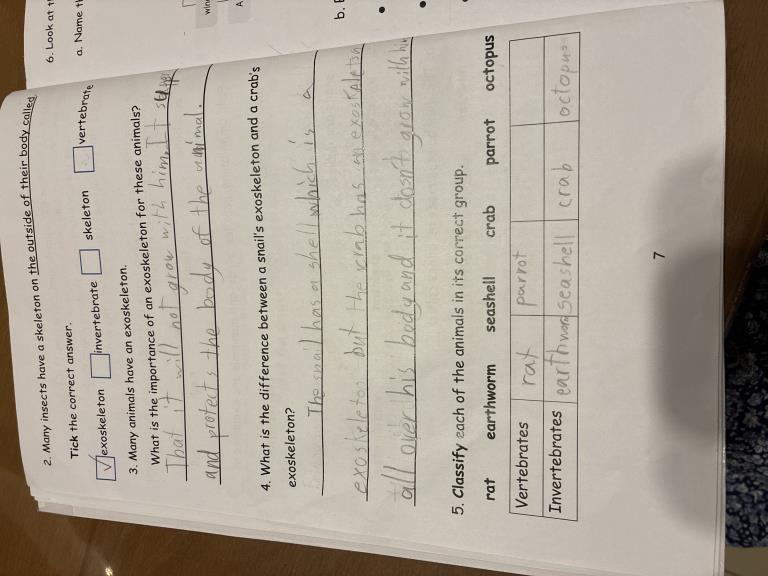 2. Many insects have a skeleton on the outside of their body called
Tick the correct answer.
exoskeleton invertebrate skeleton vertebrate
3. Many animals have an exoskeleton.
What is the importance of an exoskeleton for these animals?
That it will not grow with him. It
and protects the body of the animal.
4. What is the difference between a snail's exoskeleton and a crab's
exoskeleton?
The snail has a shell which is a
exoskeleton but the crab has an exoskeleton
all over his body and it dosn't grow with him
5. Classify each of the animals in its correct group.
rat earthworm seashell crab parrot octopus
Vertebrates rat parrot
Invertebrates earthworm seashell crab octopus
7
6. Look at
a. Name
b.